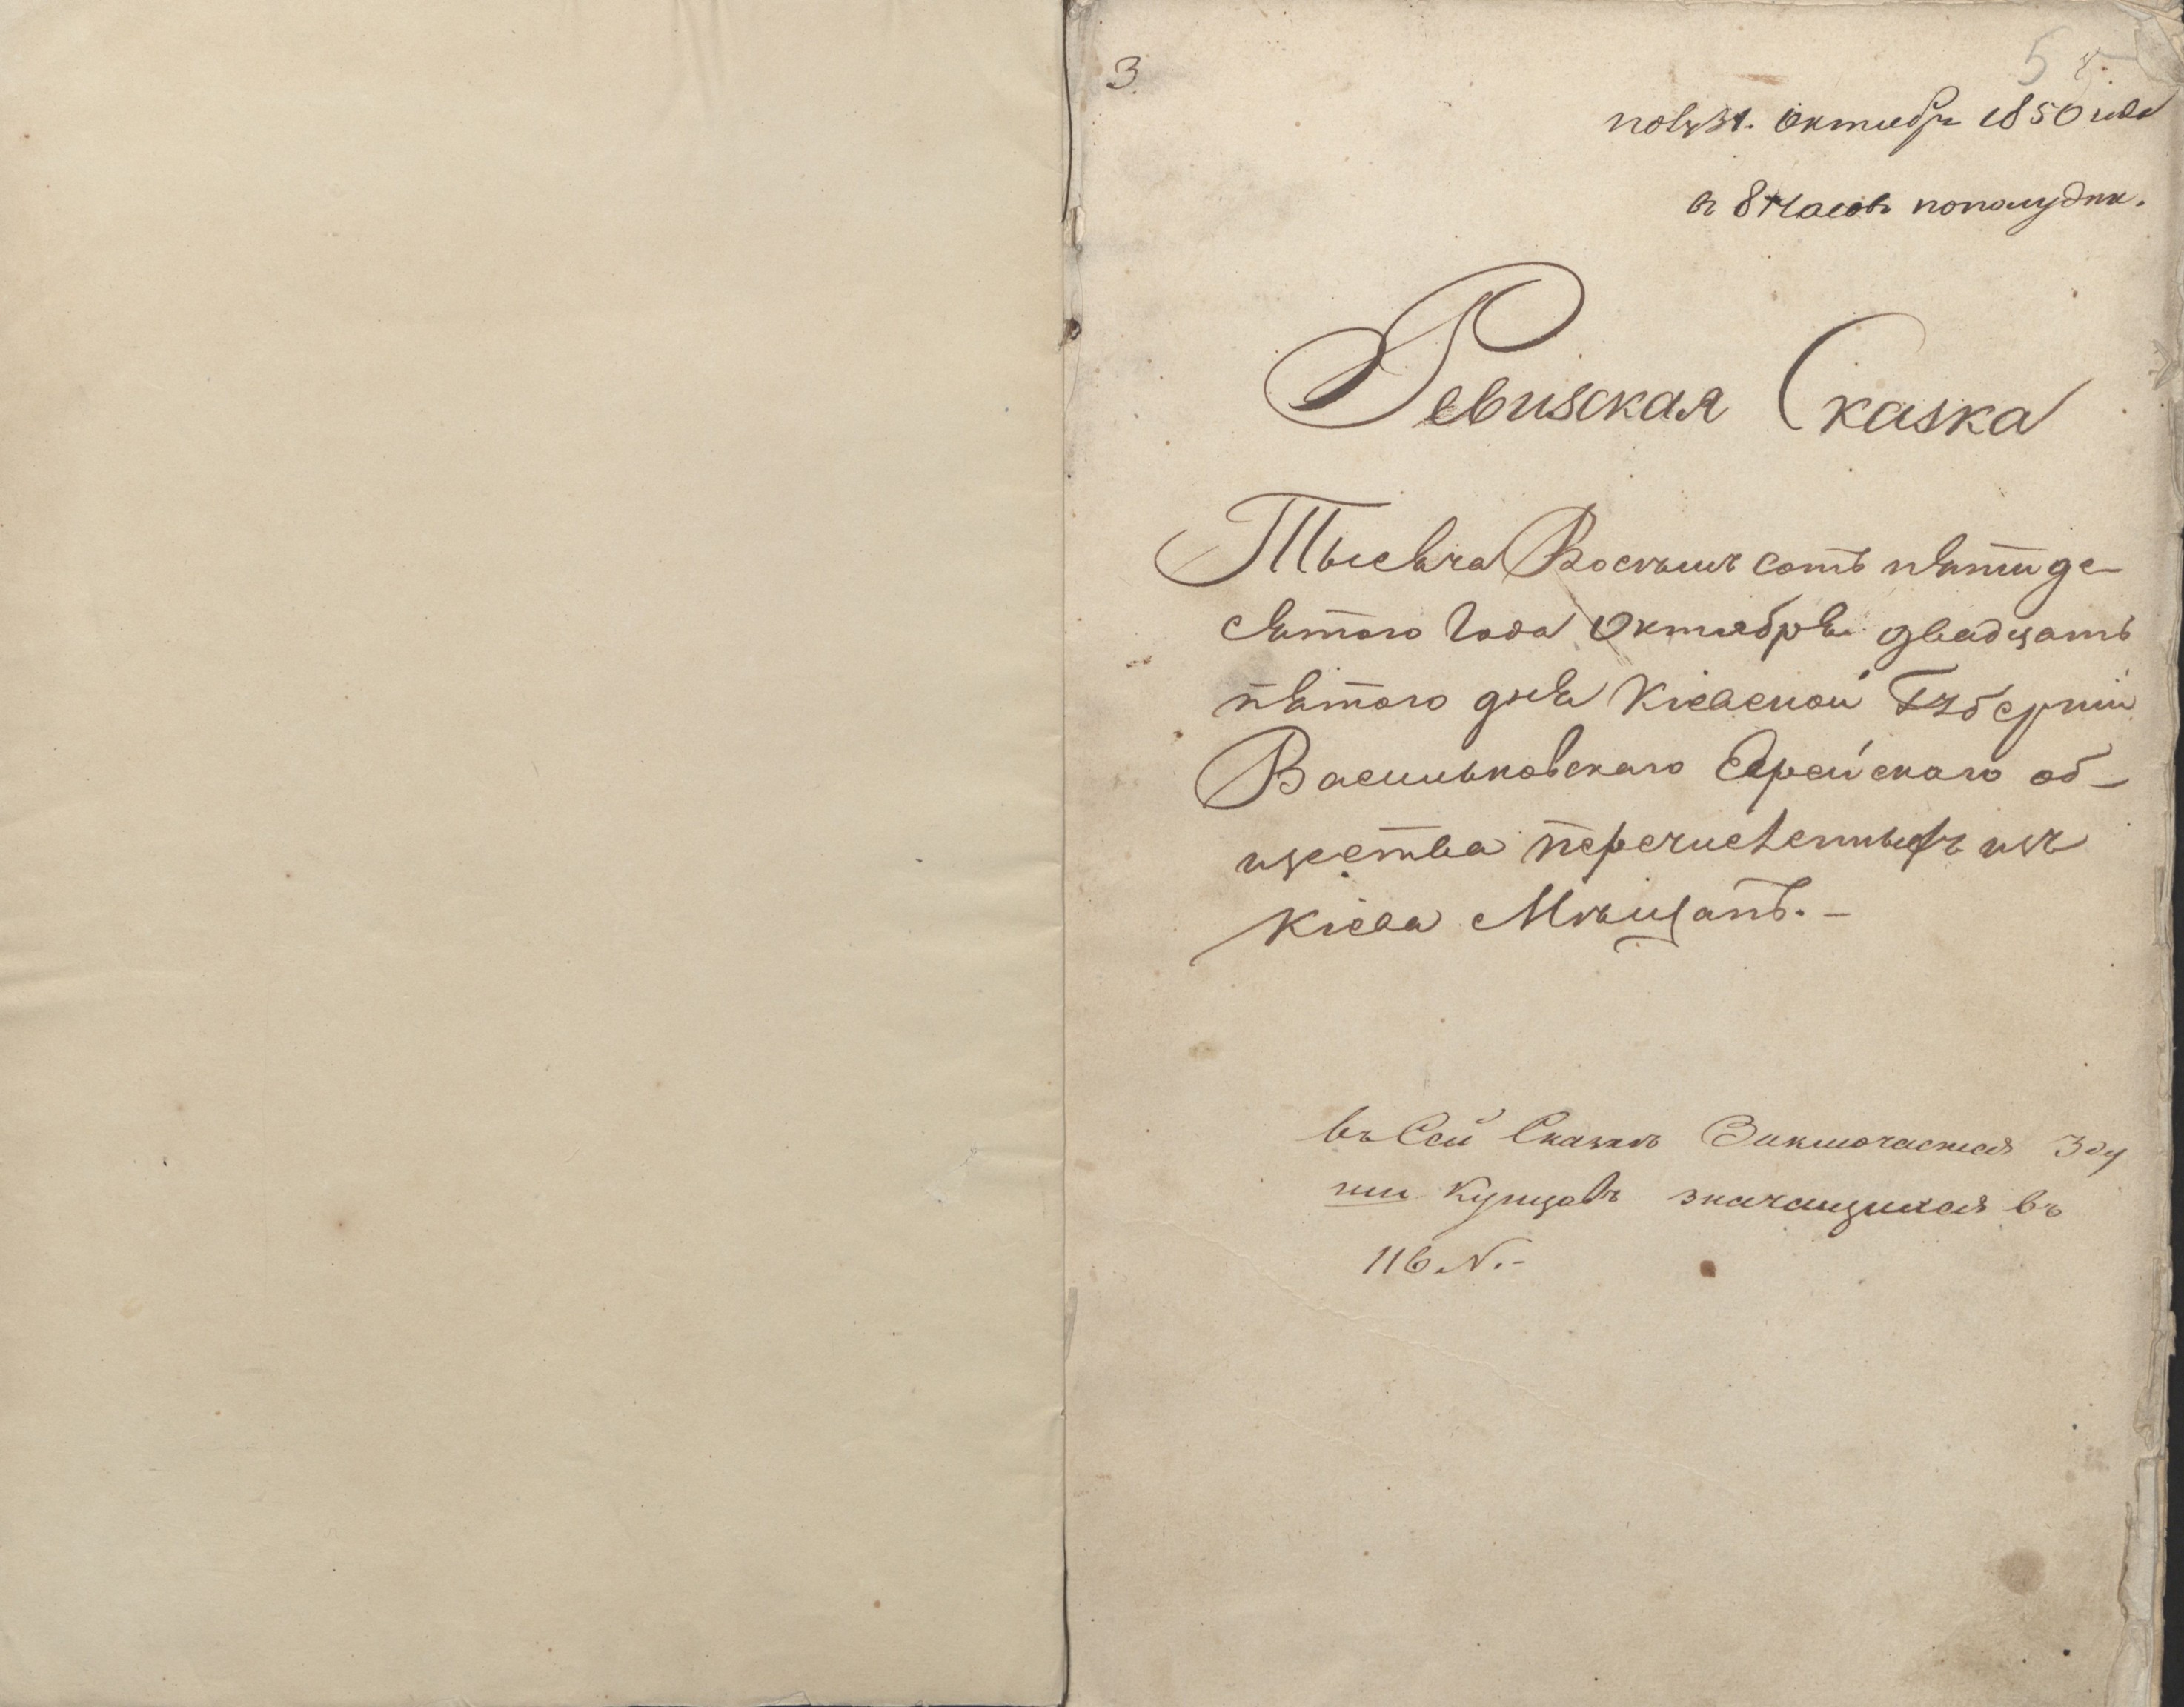 3
5
пол. 31. Октября 1850 года
въ 8 часовъ пополудни.
Ревиская Сказка
Тысяча Восѣмъ сотъ пятиде-
сятого Года Октября двадцать
пятого дня Кіевской Губерніи
Васильковскаго Еврейскаго об-
щества перечисленныхъ изъ
Кіева Мѣщанъ.-
Въ Сей Сказкѣ Заключаются 3 ду
ши Купцовъ значащихся въ
116 N.-